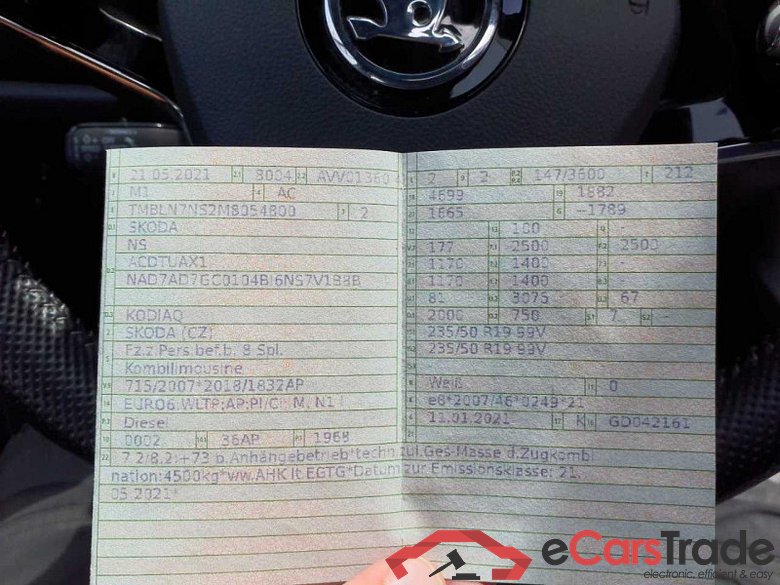 21.05.2021 3004 AVV01360
M1 AC
TMBLN7NS2M8054800 2
SKODA
NS
ACDTUAX1
NAD7AD7GC0104BI6NS7V1BBB
KODIAQ
SKODA (CZ)
Fz.z.Pers.bef.b. 8 Spl.
Kombilimousine
715/2007*2018/1832AP
EURO6;WLTP;AP;PI/CI; M, N1 I
Diesel
0002 36AP 1968
2 2 147/3600 212
4699 1882
1665 --1789
100 -
177 2500 2500
1170 1400 -
1170 1400 -
81 3075 67
2000 750 7 -
235/50 R19 99V
235/50 R19 99V
Weiß 0
e8*2007/46*0249*21
11.01.2021 K GD042161
7.2/8.2:+73 b.Anhängebetrieb*techn.zul.Ges-Masse d.Zugkombi
nation:4500kg*ww.AHK lt.EGTG*Datum zur Emissionsklasse: 21.
05.2021*
eCarsTrade
electronic, efficient & easy